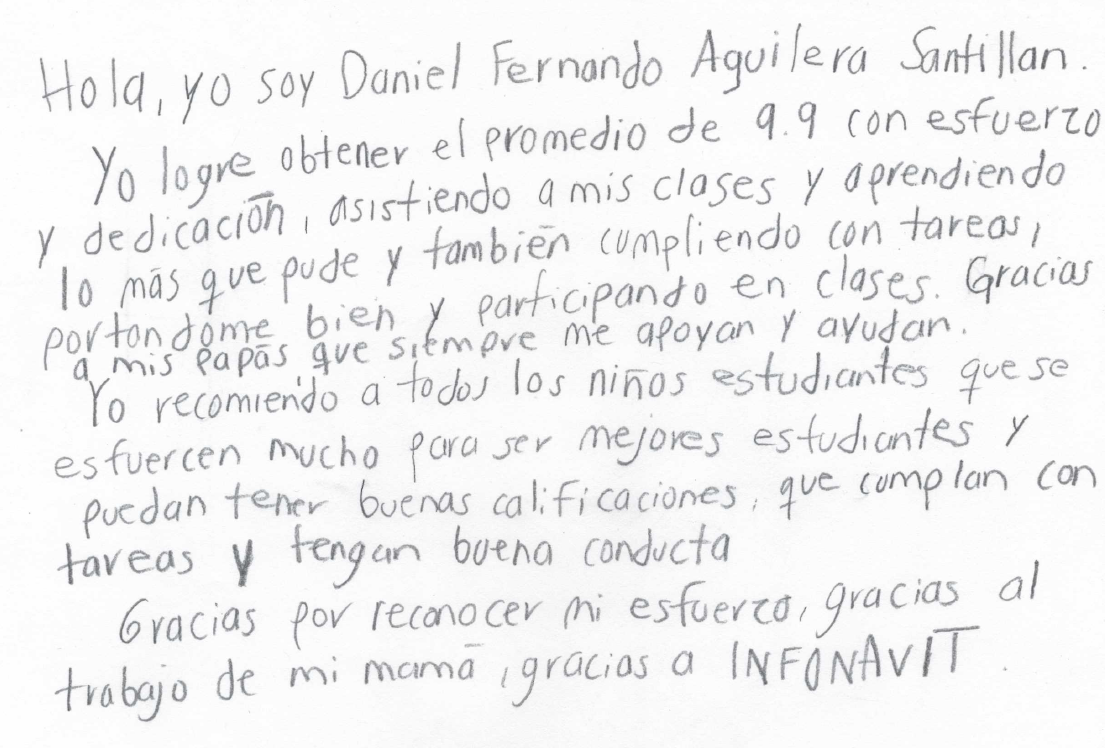 Hola, yo soy Daniel Fernando Aguilera Santillan.
Yo logre obtener el promedio de 9.9 con esfuerzo
y dedicación, asistiendo a mis clases y aprendiendo
lo más que pude y también cumpliendo con tareas,
portandome bien y participando en clases. Gracias
a mis papás que siempre me apoyan y ayudan.
Yo recomiendo a todos los niños estudiantes que se
esfuercen mucho para ser mejores estudiantes y
puedan tener buenas calificaciones, que cumplan con
tareas y tengan buena conducta
Gracias por reconocer mi esfuerzo, gracias al
trabajo de mi mamá, gracias a INFONAVIT.